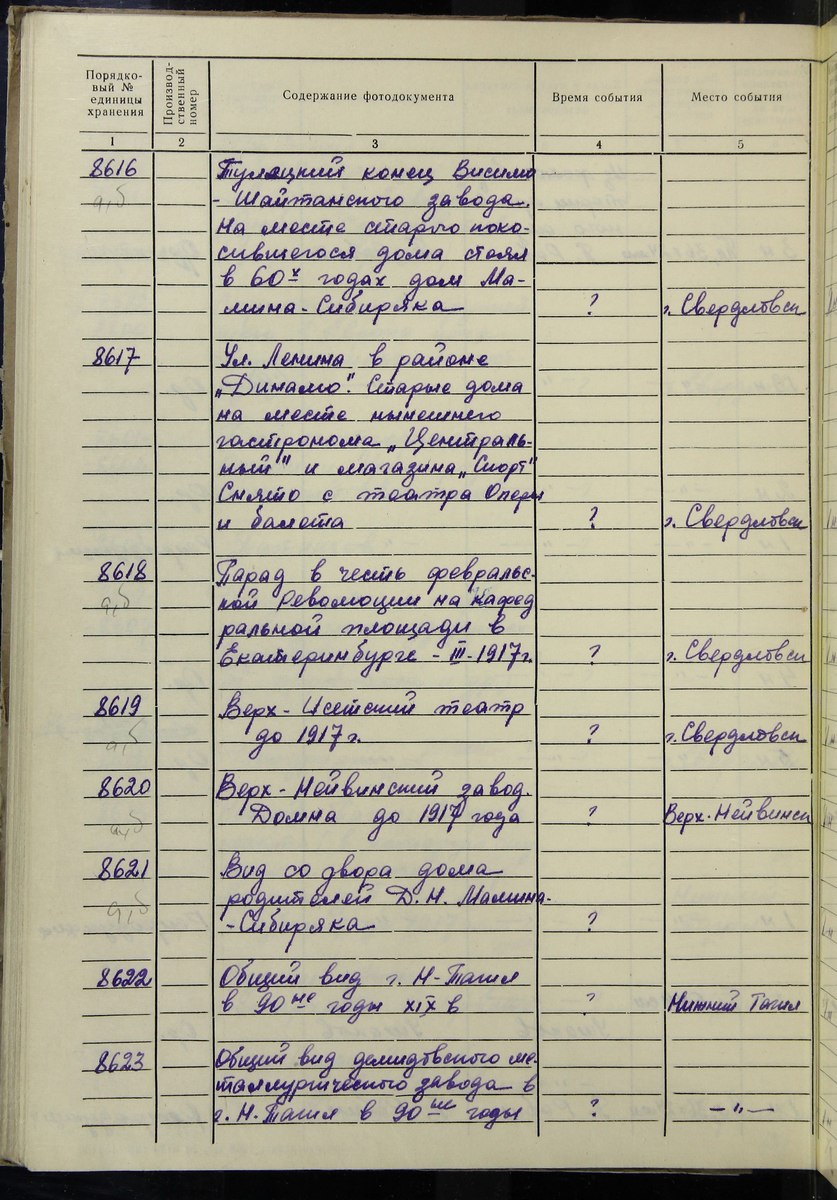 Порядко-
вый №
единицы
хранения
Производ-
ственный
номер
Содержание фотодокумента
Время события
Место события
1 2 3 4 5
8616 Туляцкий конец Висимо
а,б - Шайтанского завода.
На месте старого поко-
сившегося дома стоял
в 60х годах дом Ма-
мина-Сибиряка ? г. Свердловск
8617 Ул. Ленина в районе
„Динамо". Старые дома
на месте нынешнего
гастронома „Централь-
ный" и магазина „Спорт"
Снято с театра Оперы
и балета ? г. Свердловск
8618 Парад в честь февральс-
а,б кой Революции на кафед
ральной площади в
Екатеринбурге - III-1917г. ? г. Свердловск
8619 Верх-Исетский театр
а,б до 1917 г. ? г. Свердловск
8620 Верх-Нейвинский завод.
а,б Домна до 1917 года ? Верх-Нейвинск
8621 Вид со двора дома
а,б родителей Д.Н. Мамина-
-Сибиряка ?
8622 Общий вид г. Н-Тагил
в 90ые годы XIX в ? Нижний Тагил
8623 Общий вид демидовского ме-
таллургического завода в
г. Н. Тагил в 90ые годы ? —"—